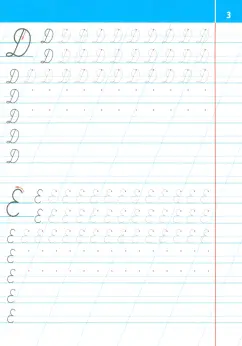 3
Д Д Д Д Д Д Д Д Д Д Д Д
Д Д Д Д Д Д Д Д Д Д Д
Д Д Д Д Д Д Д Д Д Д Д Д Д
Д
Д
Д
Д
Е Е Е Е Е Е Е Е Е Е Е Е Е Е
Е Е Е Е Е Е Е Е Е Е Е Е Е
Е Е Е Е Е Е Е Е Е Е Е Е Е
Е
Е
Е
Е